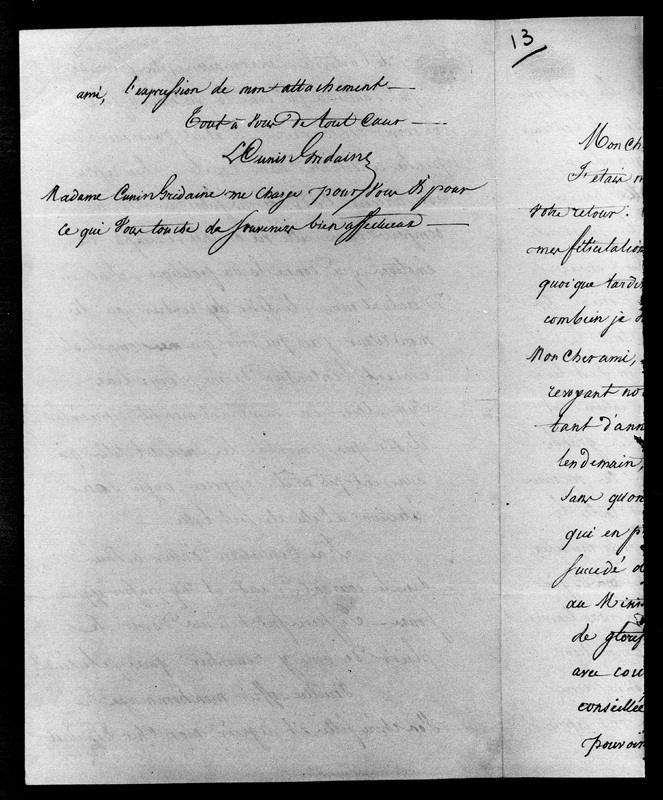 ami, l'expression de mon attachement —
Tout à vous de tout cœur —
L Cunin Gridaine
Madame Cunin Gridaine me charge pour vous & pour
ce qui vous touche de souvenirs bien affectueux —
13
Mon ch
J'étais
votre retour.
mes félicitation
quoique tardi
combien je
Mon cher ami,
revoyant no
tant d'ann
lendemain,
sans qu'on
qui en p
succédé d
au Mini
de glorif
avec cou
conseillée
pouvoir